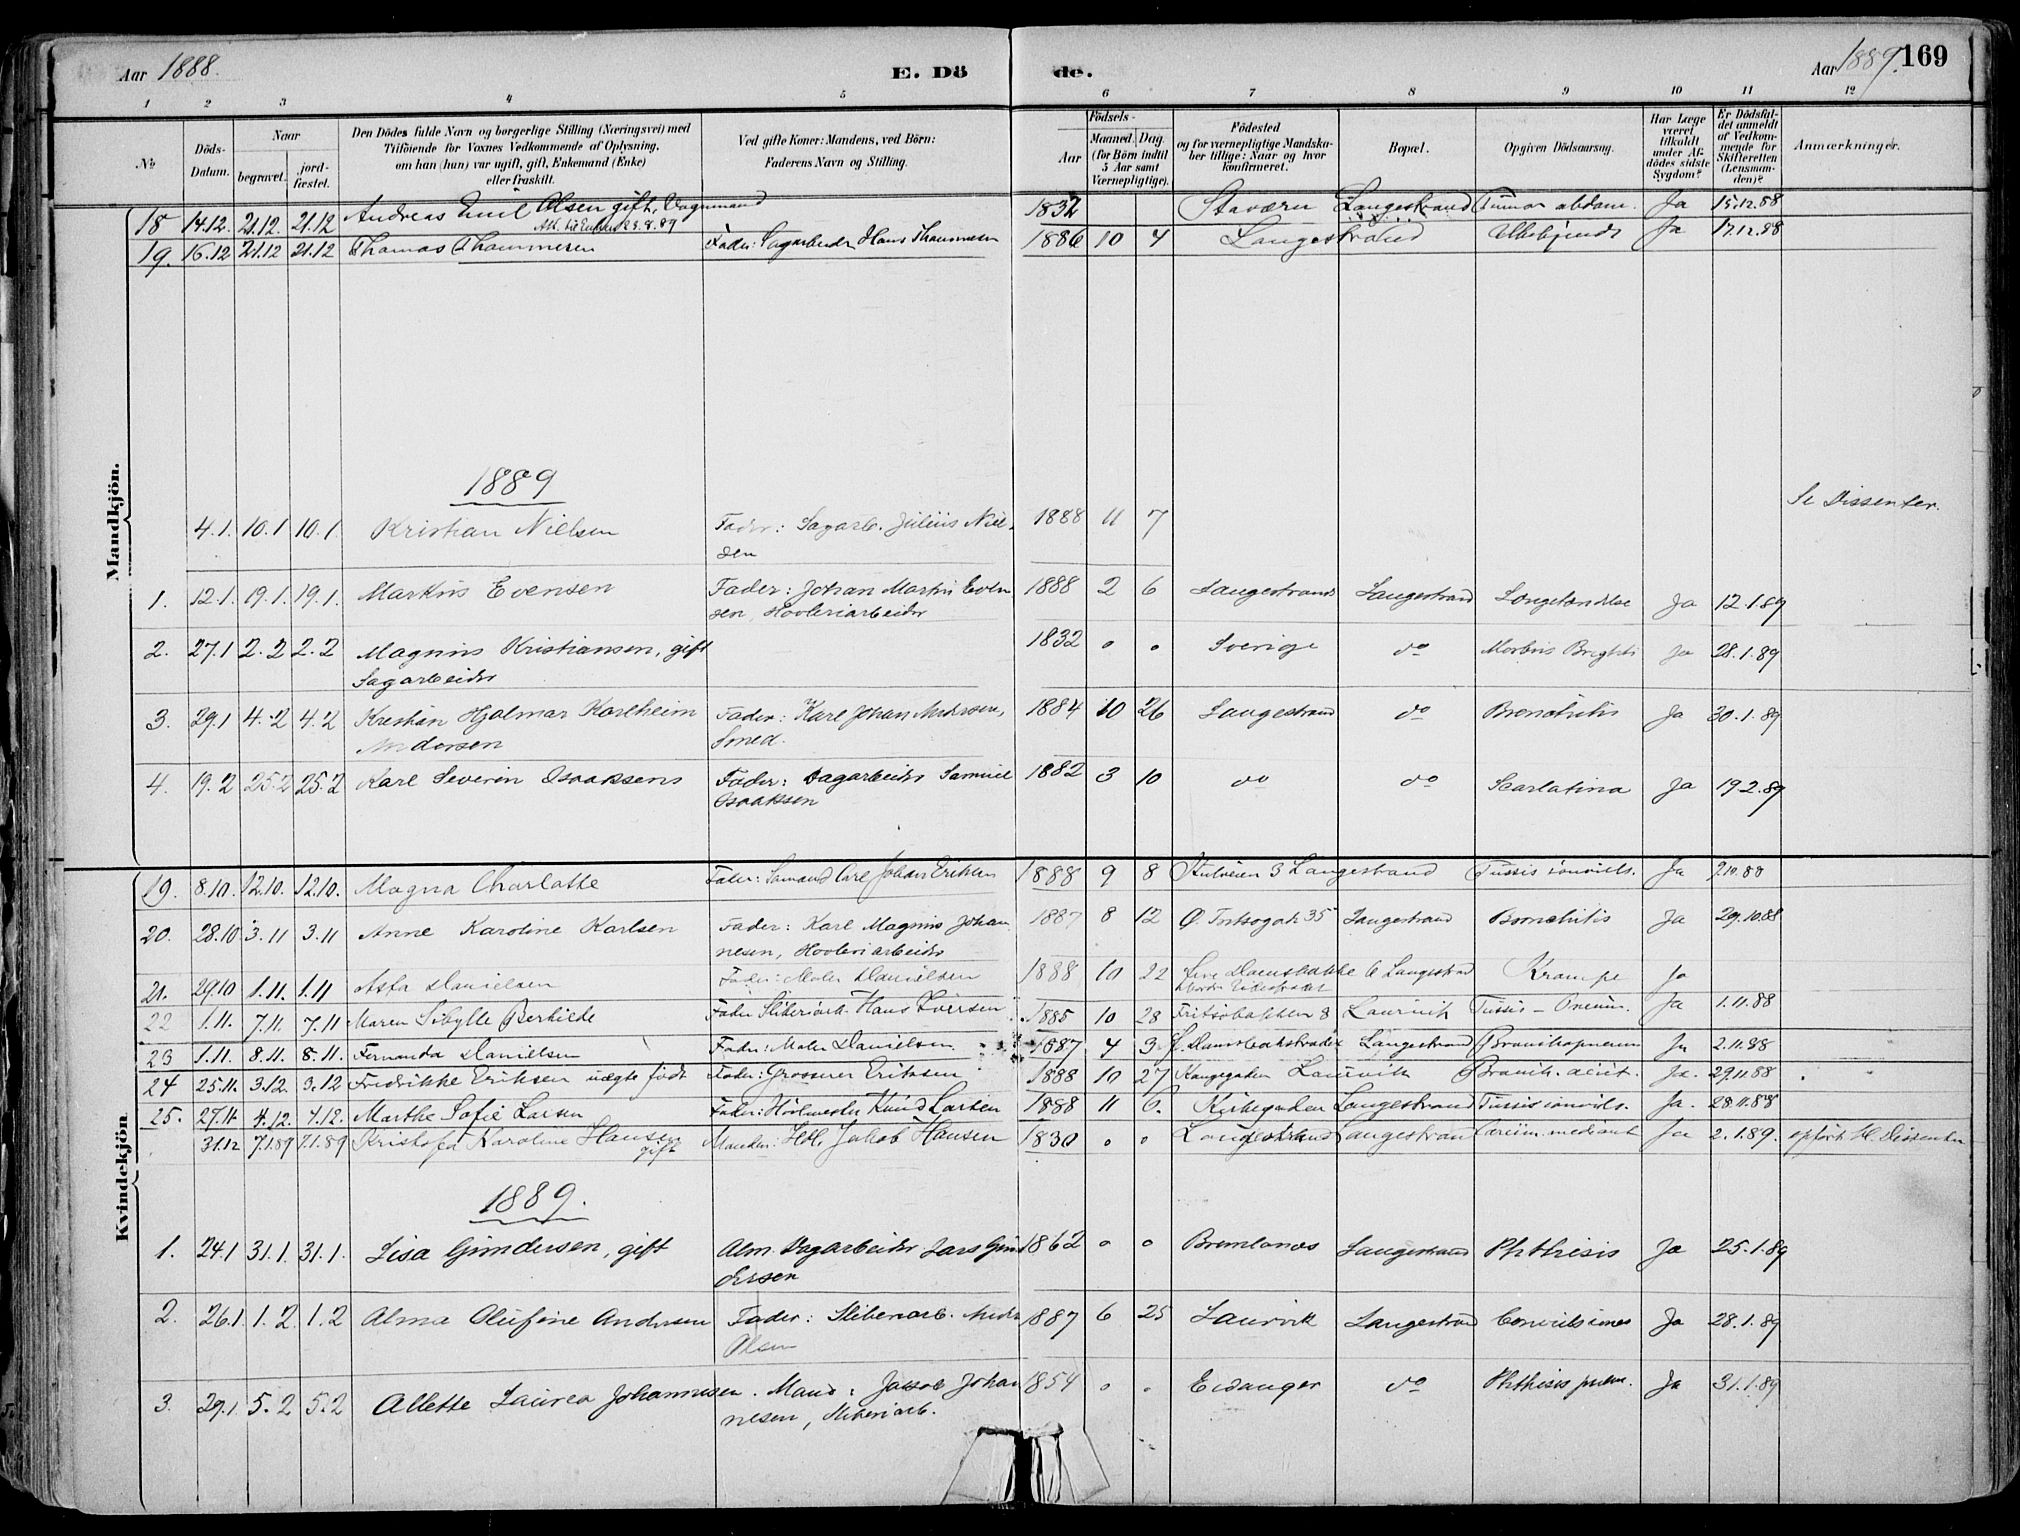 Aar 1888. E. Dö de. Aar 1889. 169
1 2 3 4 5 6 7 8 9 10 11 12
No Döds-Datum. Naar begravet. jord-fæstet. Den Dödes fulde Navn og borgerlige Stilling (Næringsvei) med Tilföiende for Voxnes Vedkommende af Oplysning, om han (hun) var ugift, gift, Enkemand (Enke) eller fraskilt. Ved gifte Koner: Mandens, ved Börn: Faderens Navn og Stilling. Födsels- Aar Maaned. Dag. (for Börn indtil 5 Aar samt Værnepligtige). Födested og for værnepligtige Mandskaber tillige: Naar og hvor konfirmeret. Bopæl. Opgiven Dödsaarsag. Har Læge været tilkaldt under Afdödes sidste Sygdom? Er Dödsfaldet anmeldt af Vedkommende for Skifteretten (Lensmanden)? Anmærkninger.
Mandkjön.
18 14.12. 21.12. 21.12 Andreas Emil Olsen gift, Vognmand 1832 Staværn Langestrand Tumor abdom. Ja 15.12.88
19. 16.12 21.12 21.12 Thomas Thommesen Fader: Sagarbeider Hans Thommesen 1886 10 4 Langestrand Ubekjendt Ja 17.12.88
1889
4.1. 10.1 10.1. Kristian Nielsen Fader: Sagarb. Julius Niel- 1888 11 7 Se Dissenter.
sen
1. 12.1. 19.1. 19.1. Markus Evensen Fader: Johan Martin Even 1888 2 6 Langestrand Langestrand Lungebetændelse Ja 12.1.89
sen, Hövleriarbeider
2. 27.1 2.2 2.2 Magnus Kristiansen, gift 1832 o o Sverige do Morbus Brightii Ja 28.1.89
Sagarbeider
3. 29.1 4.2 4.2 Kristian Hjalmar Karlheim Fader: Karl Johan Andersen, 1884 10 26 Langestrand do Bronchitis Ja 30.1.89
Andersen Smed.
4. 19.2 25.2 25.2 Karl Severin Isaaksens Fader: Dagarbeider Samuel 1882 3 10 do do Scarlatina Ja 19.2.89
Isaaksen
Kvindekjön
19. 8.10. 12.10. 12.10. Magna Charlotte Fader: Sømand Carl Johan Eriksen 1888 9 8 3 Langestrand Tussis convuls. Ja 2.10.88
20. 28.10 3.11 3.11 Anne Karoline Karlsen Fader: Karl Magnus Johan 1887 8 12 Langestrand Bronchitis Ja 29.10.88
nesen, Hövleriarbeider
21. 29.10 1.11. 1.11 Asta Danielsen Fader: Maler Danielsen 1888 10 22 6 Langestrand Krampe Ja
22 1.11. 7.11. 7.11 Maren Sibylle Berhilde Fader Sliberiarb. Hans Iversen 1885 10 28 Fritsøbakken 8 Laurvik Tussis - Pneum. Ja 1.11.88
23 1.11. 8.11. 8.11. Fernanda Danielsen Fader: Maler Danielsen 1887 4 3 Langestrand Bronchopneum Ja 2.11.88
24 25.11. 3.12. 3.12 Fredrikke Eriksen uægte født Fader: Grosserer Eriksen 1888 10 27 Kongegaden Laurvik Bronch. acut. Ja. 29.11.88
25. 27.11 4.12. 4.12. Marthe Sofie Larsen Fader: Knud Larsen 1888 11 6. Kirkegaden Langestrand Tussis convuls. Ja. 28.11.88
31.12 7.1.89 7.1.89 Kristofa Karoline Hansen Manden: Jakob Hansen 1830 o o Langestrand Langestrand Ja 2.1.89. opført Dissenter
gift
1889.
1. 24.1 31.1 31.1. Lisa Gundersen, gift Alm. Dagarbeider Lars Gun 1862 o o Brunlanes Langestrand Phthisis Ja 25.1.89
dersen
2. 26.1 1.2 1.2 Alma Olufine Andersen Fader: Sliberiarb. Anders 1887 6 25 Laurvik Langestrand Convulsiones Ja 28.1.89
Olsen
3. 29.1 5.2 5.2 Allette Laurea Johannesen. Mand: Jakob Johan 1854 o o Eidanger do Phthisis pulm. Ja 31.1.89
nesen, Sliberiarb.